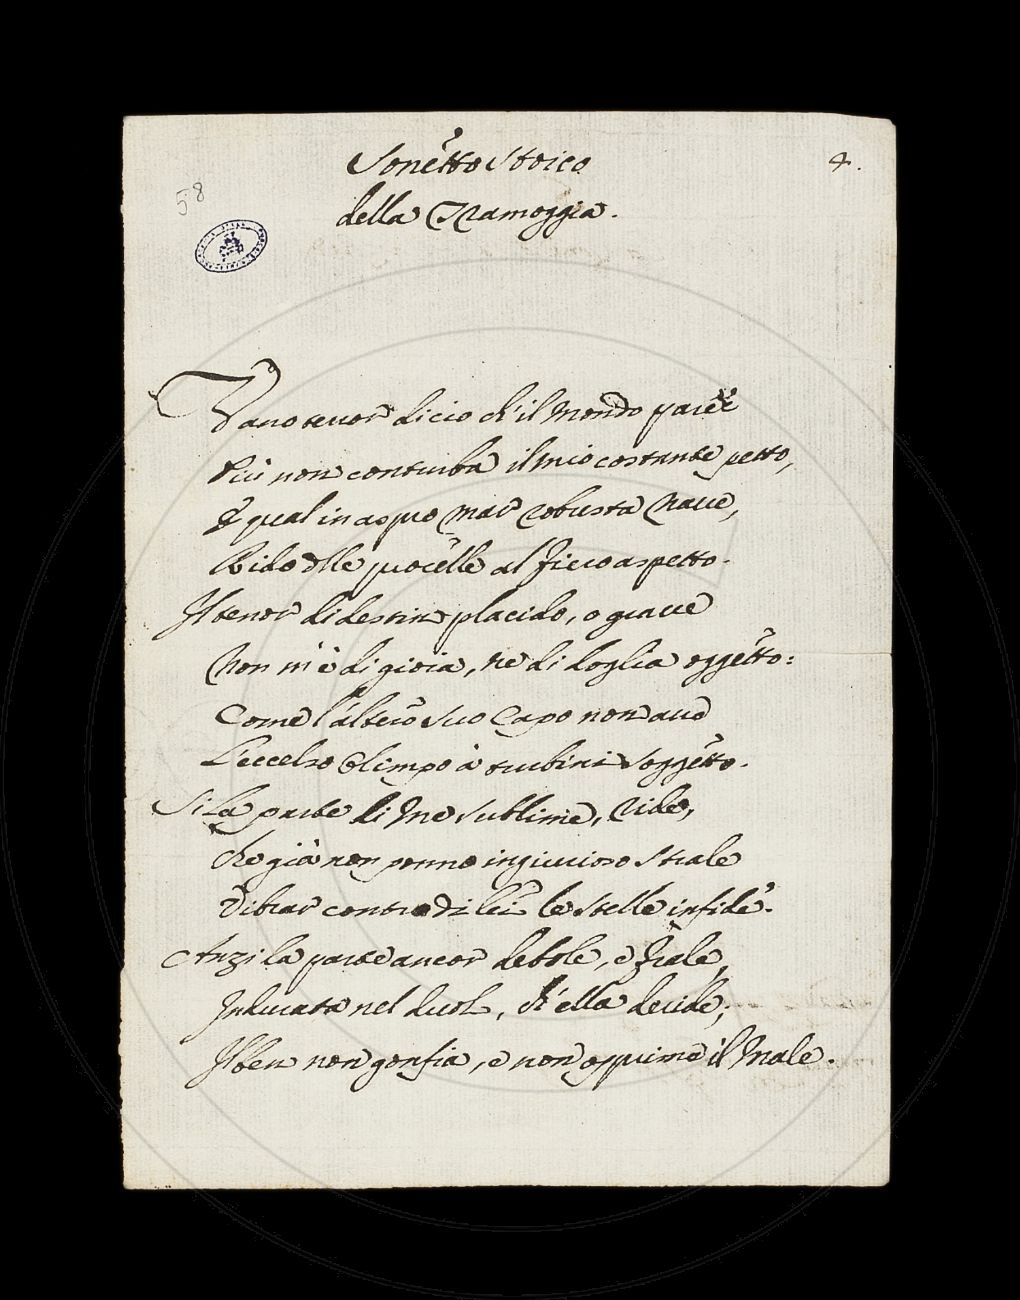 Sonetto Stoico
4.
58
della Tramoggia.
Vano tenor di ciò ch'il Mondo pave
Più non conturba il mio costante petto,
E qual in aspro Mar robusta Nave,
Rido delle procelle al fiero aspetto.
Il tenor di destin placido, o grave
Non m'è di gioia, ne di doglia oggetto:
Come l'altero suo Capo non ave
L'eccelso Olimpo à turbini soggetto.
Si La parte di Me sublime, ride,
Che già non ponno ingiurioso Strale
Vibrar contro di lei le Stelle infide.
Anzi la parte ancor debole, e frale,
Indurata nel duol, ch'ella deride;
Il ben non gonfia, e non opprime il Male.